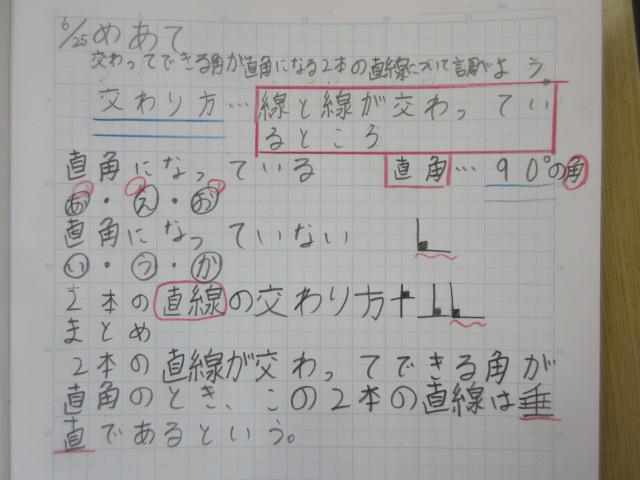 6/25 めあて
交わってできる角が直角になる2本の直線について調べよう。
交わり方…線と線が交わってい
るところ
直角になっている 直角…90°の角
あ・え・お
直角になっていない
い・う・か
2本の直線の交わり方
まとめ
2本の直線が交わってできる角が
直角のとき、この2本の直線は垂
直であるという。